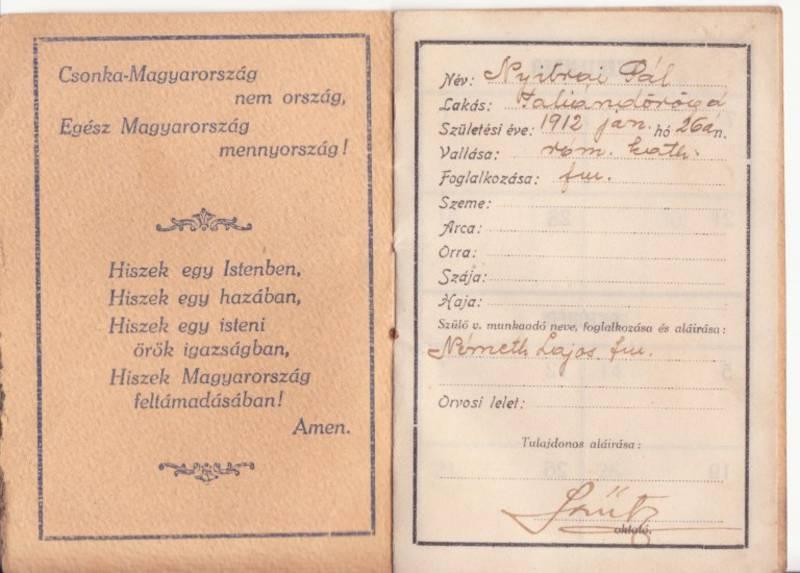 Csonka-Magyarország
nem ország,
Egész Magyarország
mennyország!
Hiszek egy Istenben,
Hiszek egy hazában,
Hiszek egy isteni
örök igazságban,
Hiszek Magyarország
feltámadásában!
Amen.
Név: Nyitrai Pál
Lakás: Taliándörögd
Születési éve: 1912 jan. hó 26án.
Vallása: rom. kath.
Foglalkozása: fm.
Szeme:
Arca:
Orra:
Szája:
Haja:
Szülő v. munkaadó neve, foglalkozása és aláirása:
Németh Lajos fm.
Orvosi lelet:
Tulajdonos aláirása:
oktató.